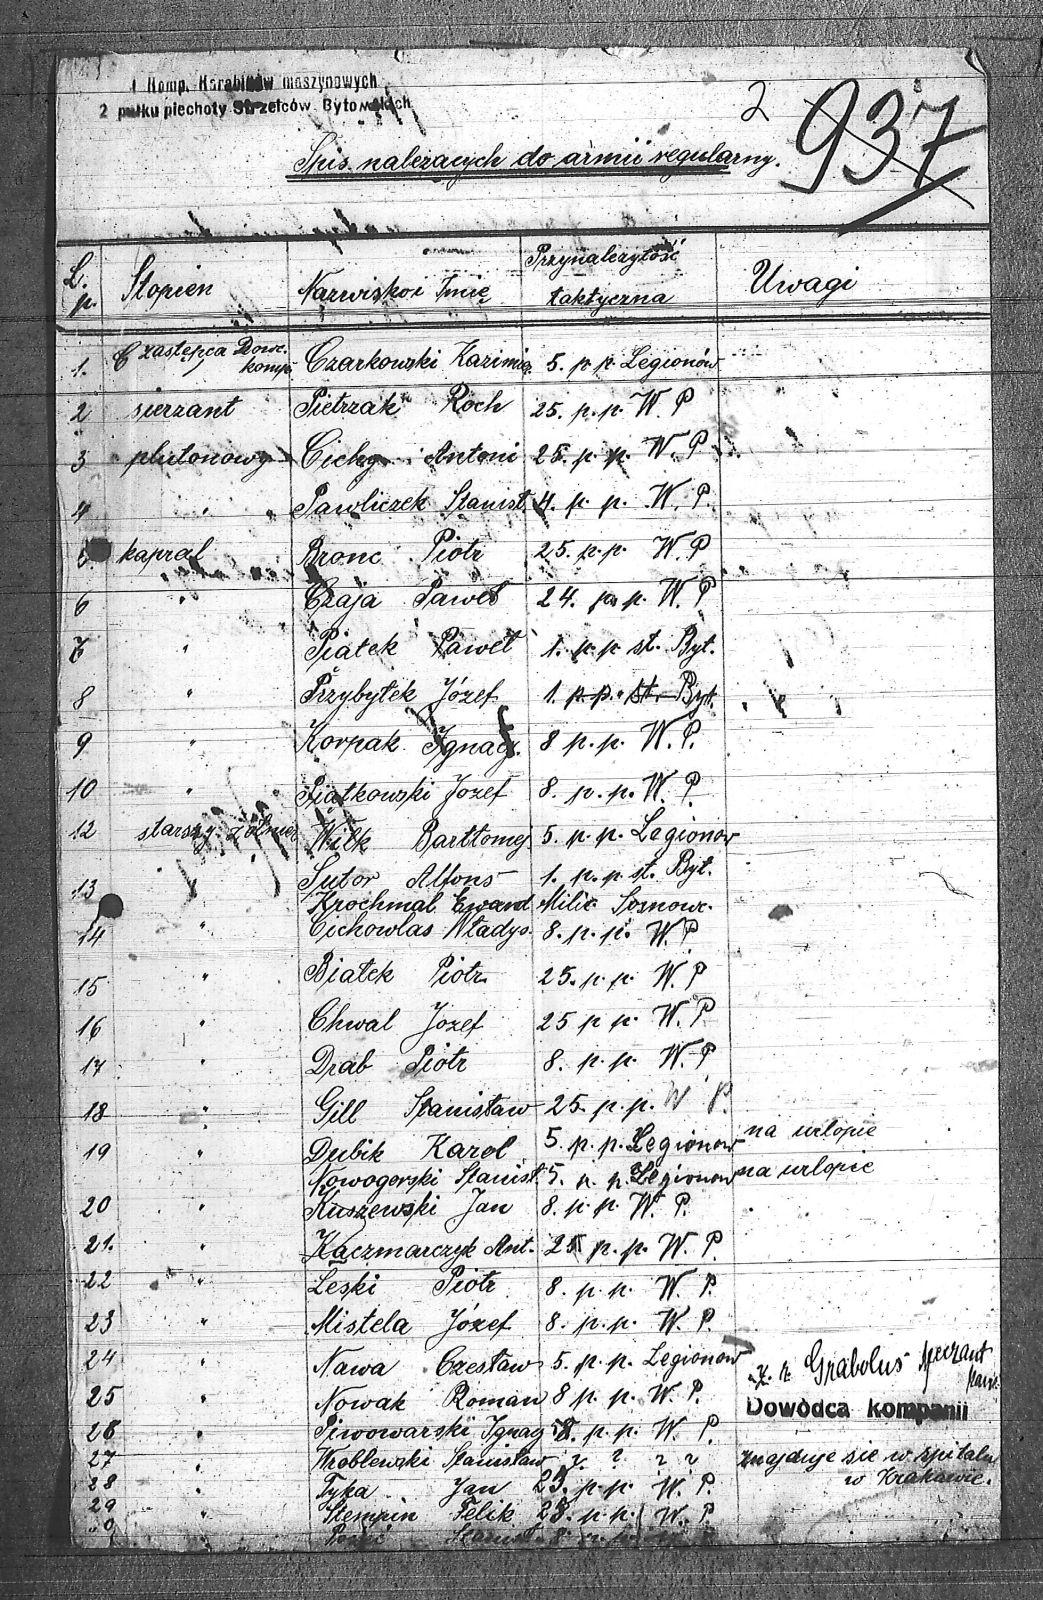 1 Komp. Karabinów maszynowych
2 pułku piechoty Strzelców Bytomskich
2 937
Spis należących do armii regularny.
L. p. Stopień Nazwisko i Imię Przynależytość taktyczna Uwagi
1. zastępca Dowc. komp. Czarkowski Kazimie. 5. p. p. Legionów
2 sierżant Pietrzak Roch 25. p. p. W. P
3 plutonowy Cichy Antoni 25. p. p. W. P.
4 " Pawliczek Stanisł. 4. p. p. W. P.
5 kapral Bronc Piotr 25. p. p. W. P
6 " Czaja Paweł 24. p. p. W. P
7 " Piątek Paweł 1. p. p. st. Byt.
8 " Przybyłek Józef 1. p. p. st. Byt.
9 " Korpak Ignacy. 8 p. p. W. P.
10 " Piątkowski Józef 8. p. p. W. P.
12 starszy żołnierz Wilk Bartłomej 5. p. p. Legionów
13 " Sutor Alfons 1. p. p. st. Byt.
Krochmal Eward Milic Sosnowc.
14 " Cichowlas Władys. 8. p. p. W. P
15 " Białek Piotr 25. p. p. W. P
16 " Chwal Jozef 25 p. p. W. P.
17 " Drab Piotr 8. p. p. W. P
18 " Gill Stanisław 25. p. p. W P.
19 " Dubik Karol 5. p. p. Legionów na urlopie
Nowogorski Stanisł. 5. p. p. Legionów na urlopie
20 " Kuszewski Jan 8. p. p. W. P.
21. " Kaczmarczyk Ant. 25 p. p. W. P.
22 " Leski Piotr 8. p. p. W. P.
23 " Mistela Józef 8. p. p. W. P.
24 " Nawa Czesław 5. p. p. Legionów
Grabolus sierżant
25 " Nowak Roman 8 p. p. W. P.
Dowódca kompanii
26 " Piwowarski Ignac 8. p. p. W. P.
27 " Wroblewski Stanisław ? ? ? ? znajduje sie w szpitalu
w Krakowie.
28 " Tyka Jan 25. p. p. W. P.
29 " Stempin Felik 25. p. p. W. P.
Stanisł. 8.